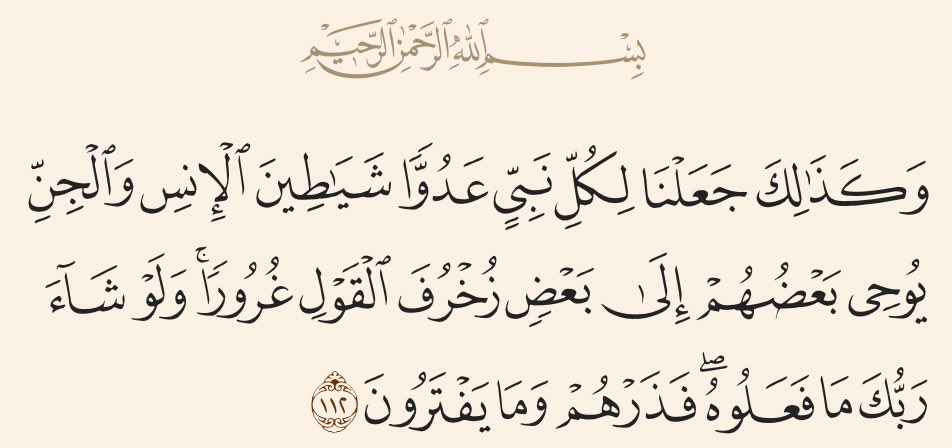 بِسْمِ ٱللَّهِ ٱلرَّحْمَٰنِ ٱلرَّحِيمِ
وَكَذَٰلِكَ جَعَلْنَا لِكُلِّ نَبِيٍّ عَدُوًّا شَيَٰطِينَ ٱلْإِنسِ وَٱلْجِنِّ
يُوحِى بَعْضُهُمْ إِلَىٰ بَعْضٍ زُخْرُفَ ٱلْقَوْلِ غُرُورًا ۚ وَلَوْ شَآءَ
رَبُّكَ مَا فَعَلُوهُ ۖ فَذَرْهُمْ وَمَا يَفْتَرُونَ ١١٢